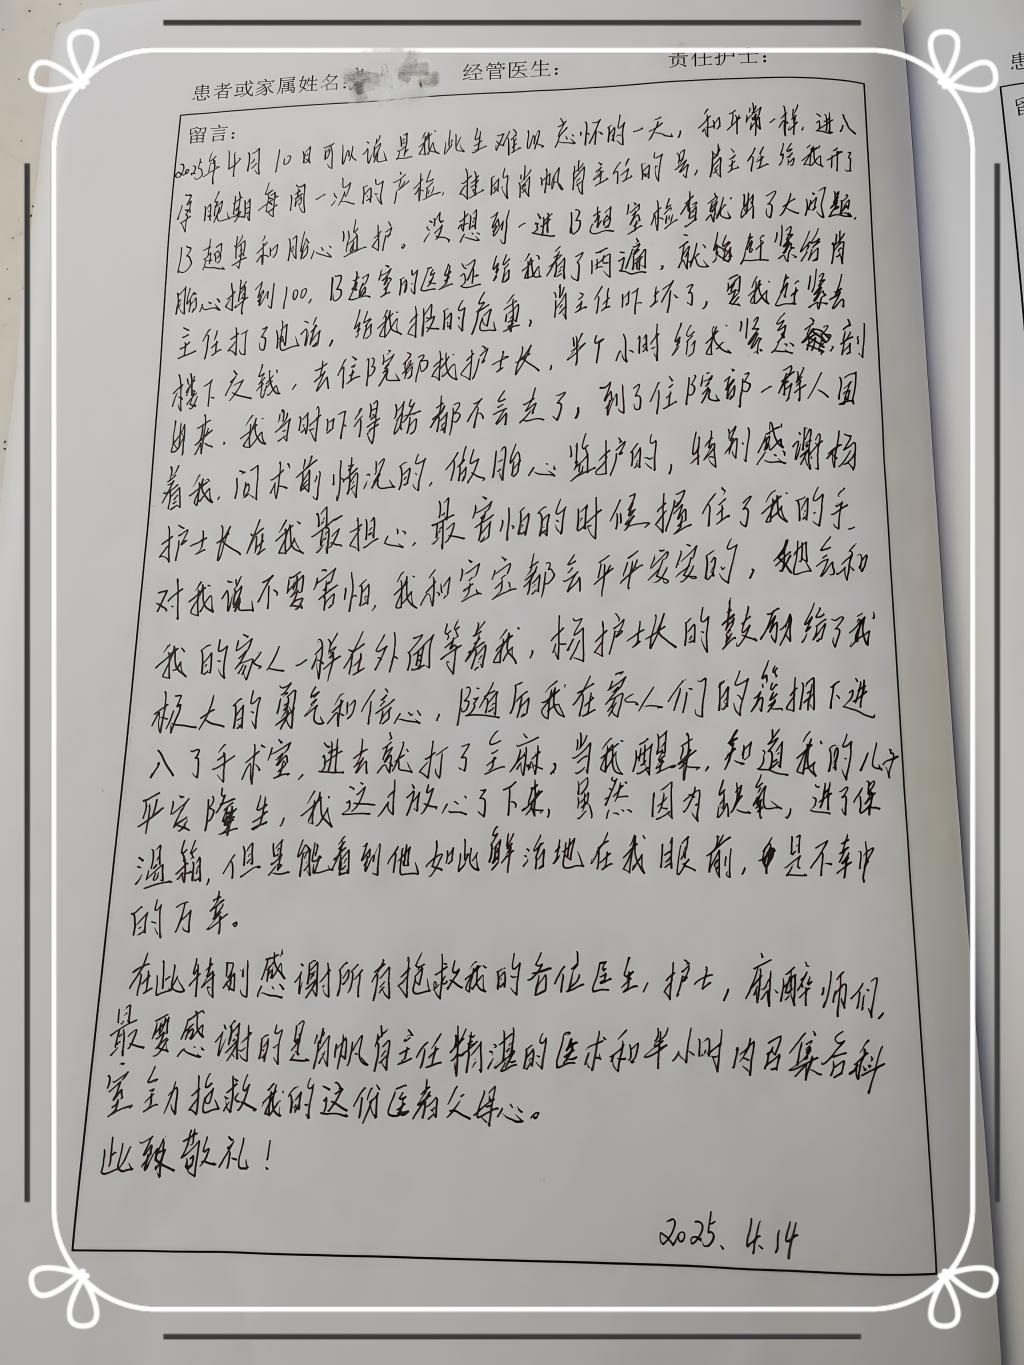 患者或家属姓名: 经管医生: 责任护士:
留言:
2025年4月10日可以说是我此生难以忘怀的一天,和平常一样,进入
孕晚期每周一次的产检,挂的肖帆肖主任的号,肖主任给我开了
B超单和胎心监护。没想到一进B超室检查就出了大问题,
胎心掉到100,B超室的医生还给我看了两遍,就赶紧给肖
主任打了电话,给我报的危重,肖主任吓坏了,要我赶紧去
楼下交钱,去住院部找护士长,半个小时给我紧急剖
出来,我当时吓得路都不会走了,到了住院部一群人围
着我,问术前情况的,做胎心监护的,特别感谢杨
护士长在我最担心,最害怕的时候握住了我的手,
对我说不要害怕,我和宝宝都会平平安安的,她会和
我的家人一样在外面等着我,杨护士长的鼓励给了我
极大的勇气和信心,随后我在家人们的簇拥下进
入了手术室,进去就打了全麻,当我醒来,知道我的儿子
平安降生,我这才放心了下来,虽然因为缺氧,进了保
温箱,但是能看到他如此鲜活地在我眼前,是不幸中
的万幸。
在此特别感谢所有抢救我的各位医生,护士,麻醉师们,
最要感谢的是肖帆肖主任精湛的医术和半小时内召集各科
室全力抢救我的这份医者父母心。
此致敬礼!
2025.4.14